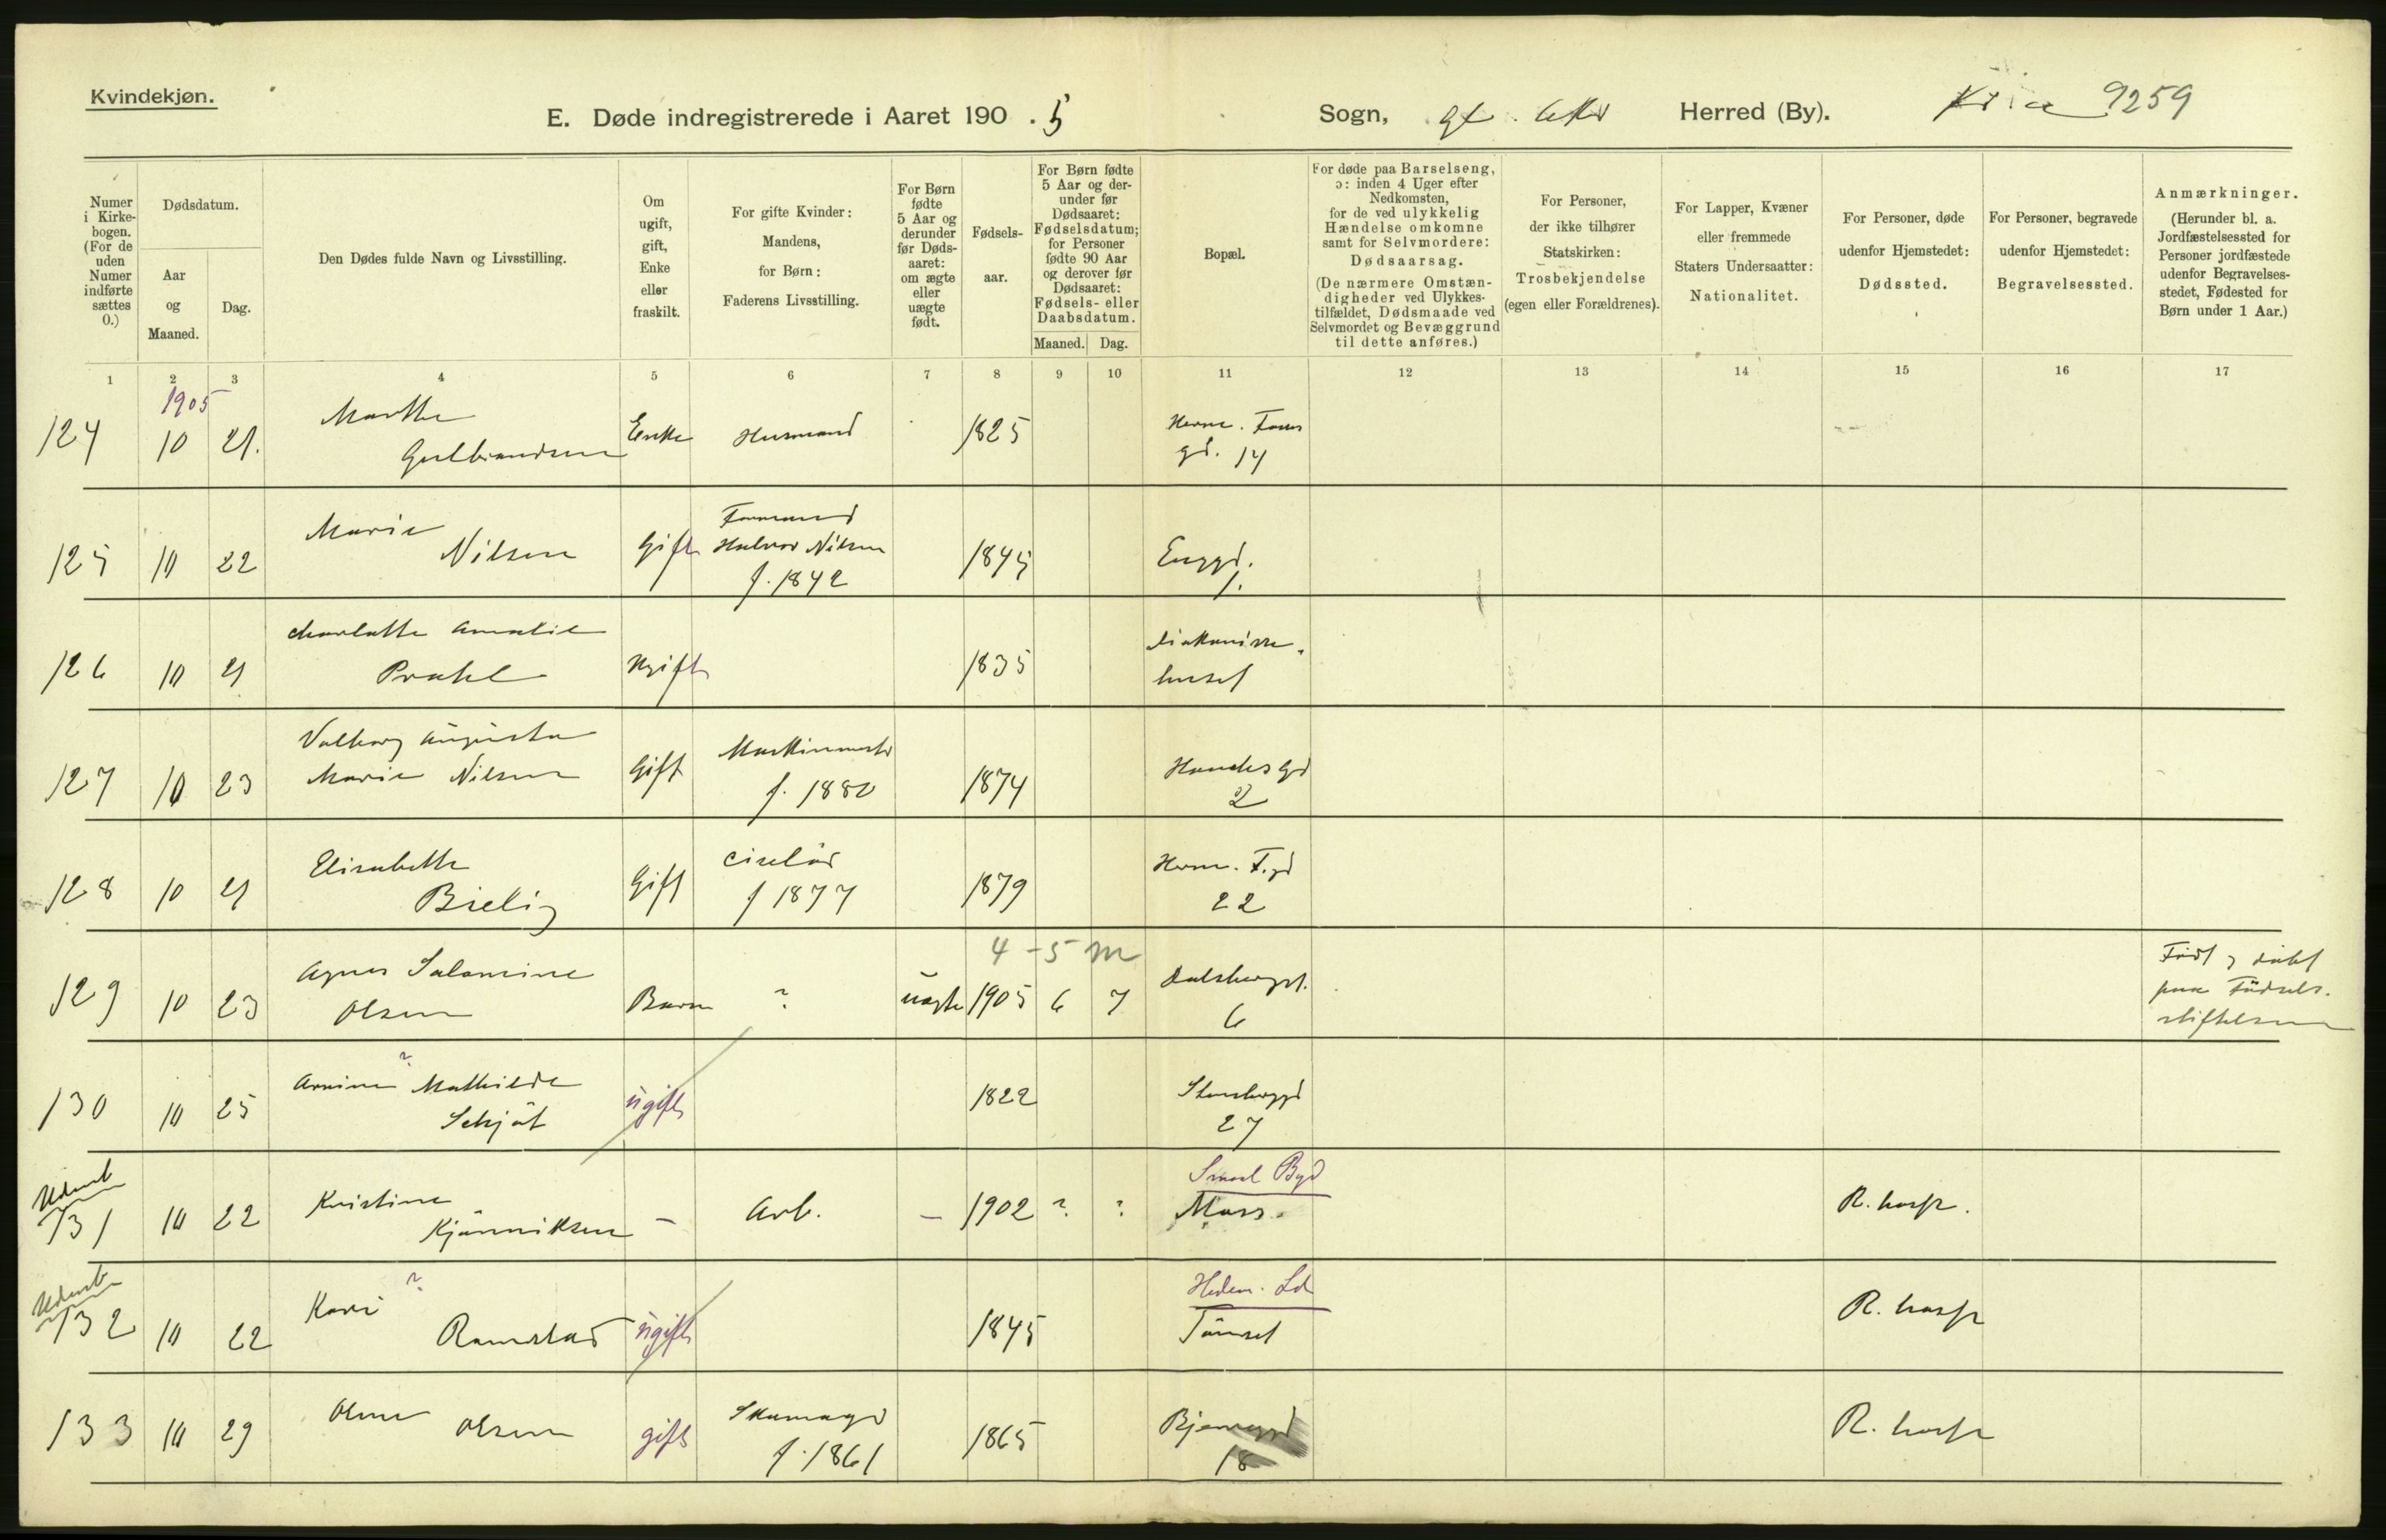 Kvindekjøn.
E. Døde indregistrerede i Aaret 190.5
Sogn, gl. Aker Herred (By). Kr.ia 9259
Numer i Kirkebogen. (For de uden Numer indførte sættes 0.)
Dødsdatum.
Aar og Maaned.
Dag.
Den Dødes fulde Navn og Livsstilling.
Om ugift, gift, Enke eller fraskilt.
For gifte Kvinder: Mandens, for Børn: Faderens Livsstilling.
For Børn fødte 5 Aar og derunder før Dødsaaret: om ægte eller uægte født.
Fødselsaar.
For Børn fødte 5 Aar og derunder før Dødsaaret: Fødselsdatum; for Personer fødte 90 Aar og derover før Dødsaaret: Fødsels- eller Daabsdatum.
Maaned. Dag.
Bopæl.
For døde paa Barselseng, ɔ: inden 4 Uger efter Nedkomsten, for de ved ulykkelig Hændelse omkomne samt for Selvmordere: Dødsaarsag.
(De nærmere Omstændigheder ved Ulykkestilfældet, Dødsmaade ved Selvmordet og Bevæggrund til dette anføres.)
For Personer, der ikke tilhører Statskirken: Trosbekjendelse (egen eller Forældrenes).
For Lapper, Kvæner eller fremmede Staters Undersaatter: Nationalitet.
For Personer, døde udenfor Hjemstedet: Dødssted.
For Personer, begravede udenfor Hjemstedet: Begravelsessted.
Anmærkninger.
(Herunder bl. a. Jordfæstelsessted for Personer jordfæstede udenfor Begravelsesstedet, Fødested for Børn under 1 Aar.)
1 2 3 4 5 6 7 8 9 10 11 12 13 14 15 16 17
1905
124 10 21. Marthe Gulbrandsen Enke Husmand 1825 Herm. Foss gd. 14
125 10 22 Marie Nilsen Gift Formand Halvor Nilsen f. 1842 1845 Enggd. 1.
126 10 21 Charlotte Amalie Prahl Ugift 1835 Diakonissehuset
127 10 23 Valborg Augusta Marie Nilsen Gift Maskinmester f. 1880 1874 gd 2
128 10 21 Elisabeth Bielig Gift Ciselør f 1877 1879 Herm. F.gd 22
4-5 m
129 10 23 Agnes Salomine Olsen Barn ? uægte 1905 6 7 Dalsbergst. 6 Født og døbt paa Fødselsstiftelsen
130 10 25 ? Mathilde Schjøt ugift 1822 Stensberggd 27
Udenb
131 10 22 Kristine - Arb. - 1902 ? ? Smaal Byd Moss. R. hosp.
Udenb
132 10 22 Kari ? Ramstad ugift 1845 Hedem. Ld Tönset R. hosp
133 10 29 Olsen gift Skomager f. 1861 1865 18 R. hosp